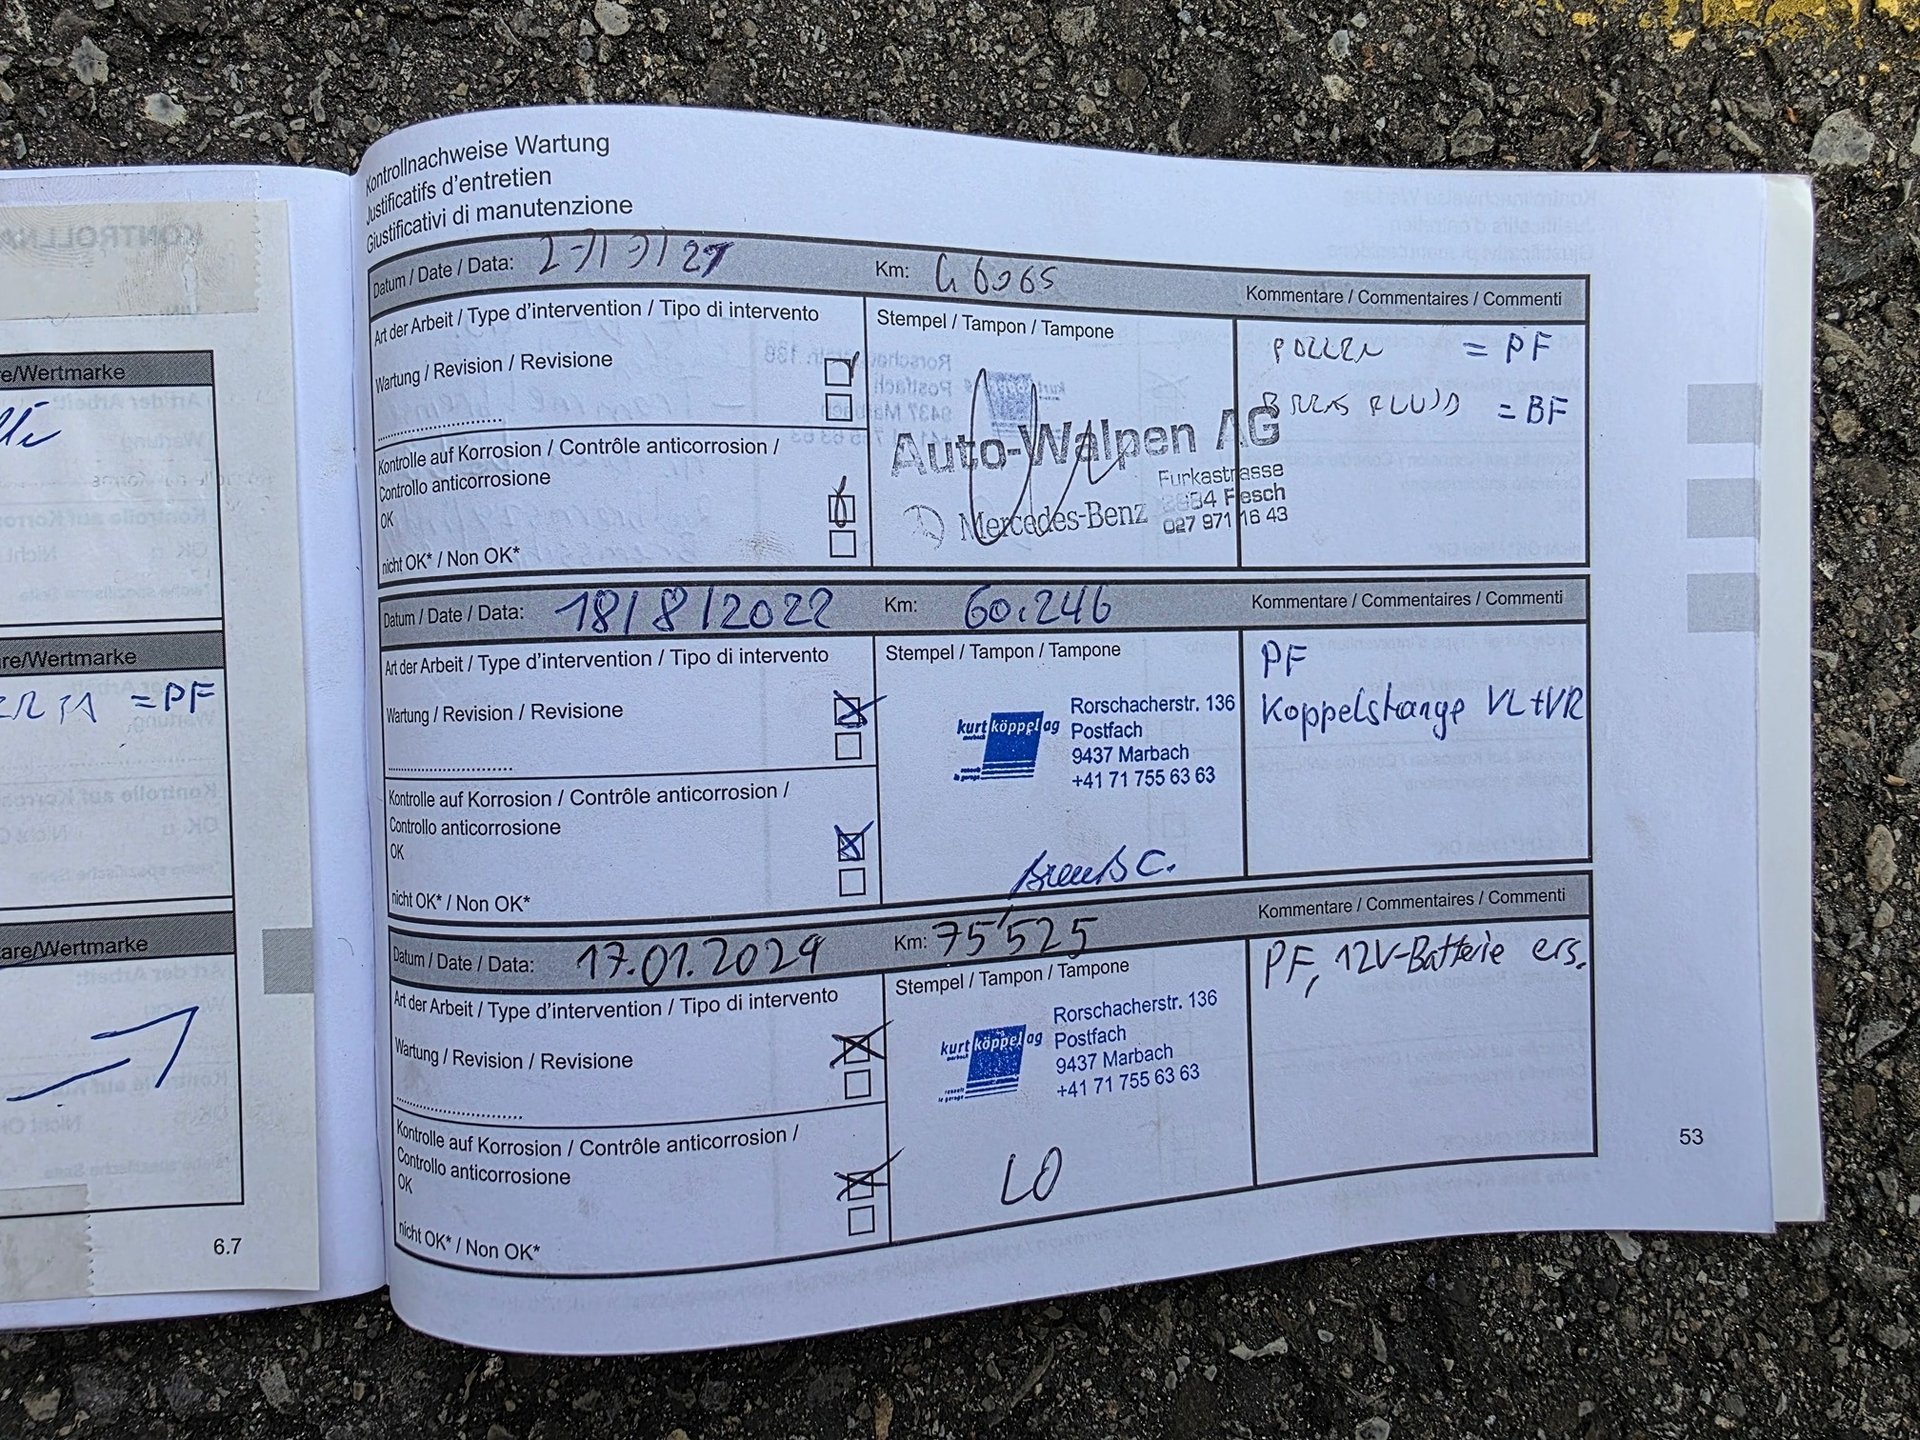 Kontrollnachweise Wartung
Justificatifs d'entretien
Giustificativi di manutenzione
Datum / Date / Data:
Km:
Kommentare / Commentaires / Commenti
Art der Arbeit / Type d'intervention / Tipo di intervento
Stempel / Tampon / Tampone
= PF
Wartung / Revision / Revisione
= BF
Auto-Walpen AG
Furkastrasse
Fiesch
027 971 16 43
Mercedes-Benz
Kontrolle auf Korrosion / Contrôle anticorrosion /
Controllo anticorrosione
OK
nicht OK* / Non OK*
Datum / Date / Data: 18/8/2022
Km: 60.246
Kommentare / Commentaires / Commenti
Art der Arbeit / Type d'intervention / Tipo di intervento
Stempel / Tampon / Tampone
PF
Koppelstange VL+VR
Wartung / Revision / Revisione
kurt köppel ag
Rorschacherstr. 136
Postfach
9437 Marbach
+41 71 755 63 63
Kontrolle auf Korrosion / Contrôle anticorrosion /
Controllo anticorrosione
OK
nicht OK* / Non OK*
Datum / Date / Data: 17.01.2024
Km: 75'525
Kommentare / Commentaires / Commenti
Art der Arbeit / Type d'intervention / Tipo di intervento
Stempel / Tampon / Tampone
PF, 12V-Batterie ers.
Wartung / Revision / Revisione
kurt köppel ag
Rorschacherstr. 136
Postfach
9437 Marbach
+41 71 755 63 63
Kontrolle auf Korrosion / Contrôle anticorrosion /
Controllo anticorrosione
OK
LO
nicht OK* / Non OK*
53
re/Wertmarke
are/Wertmarke
= PF
are/Wertmarke
6.7